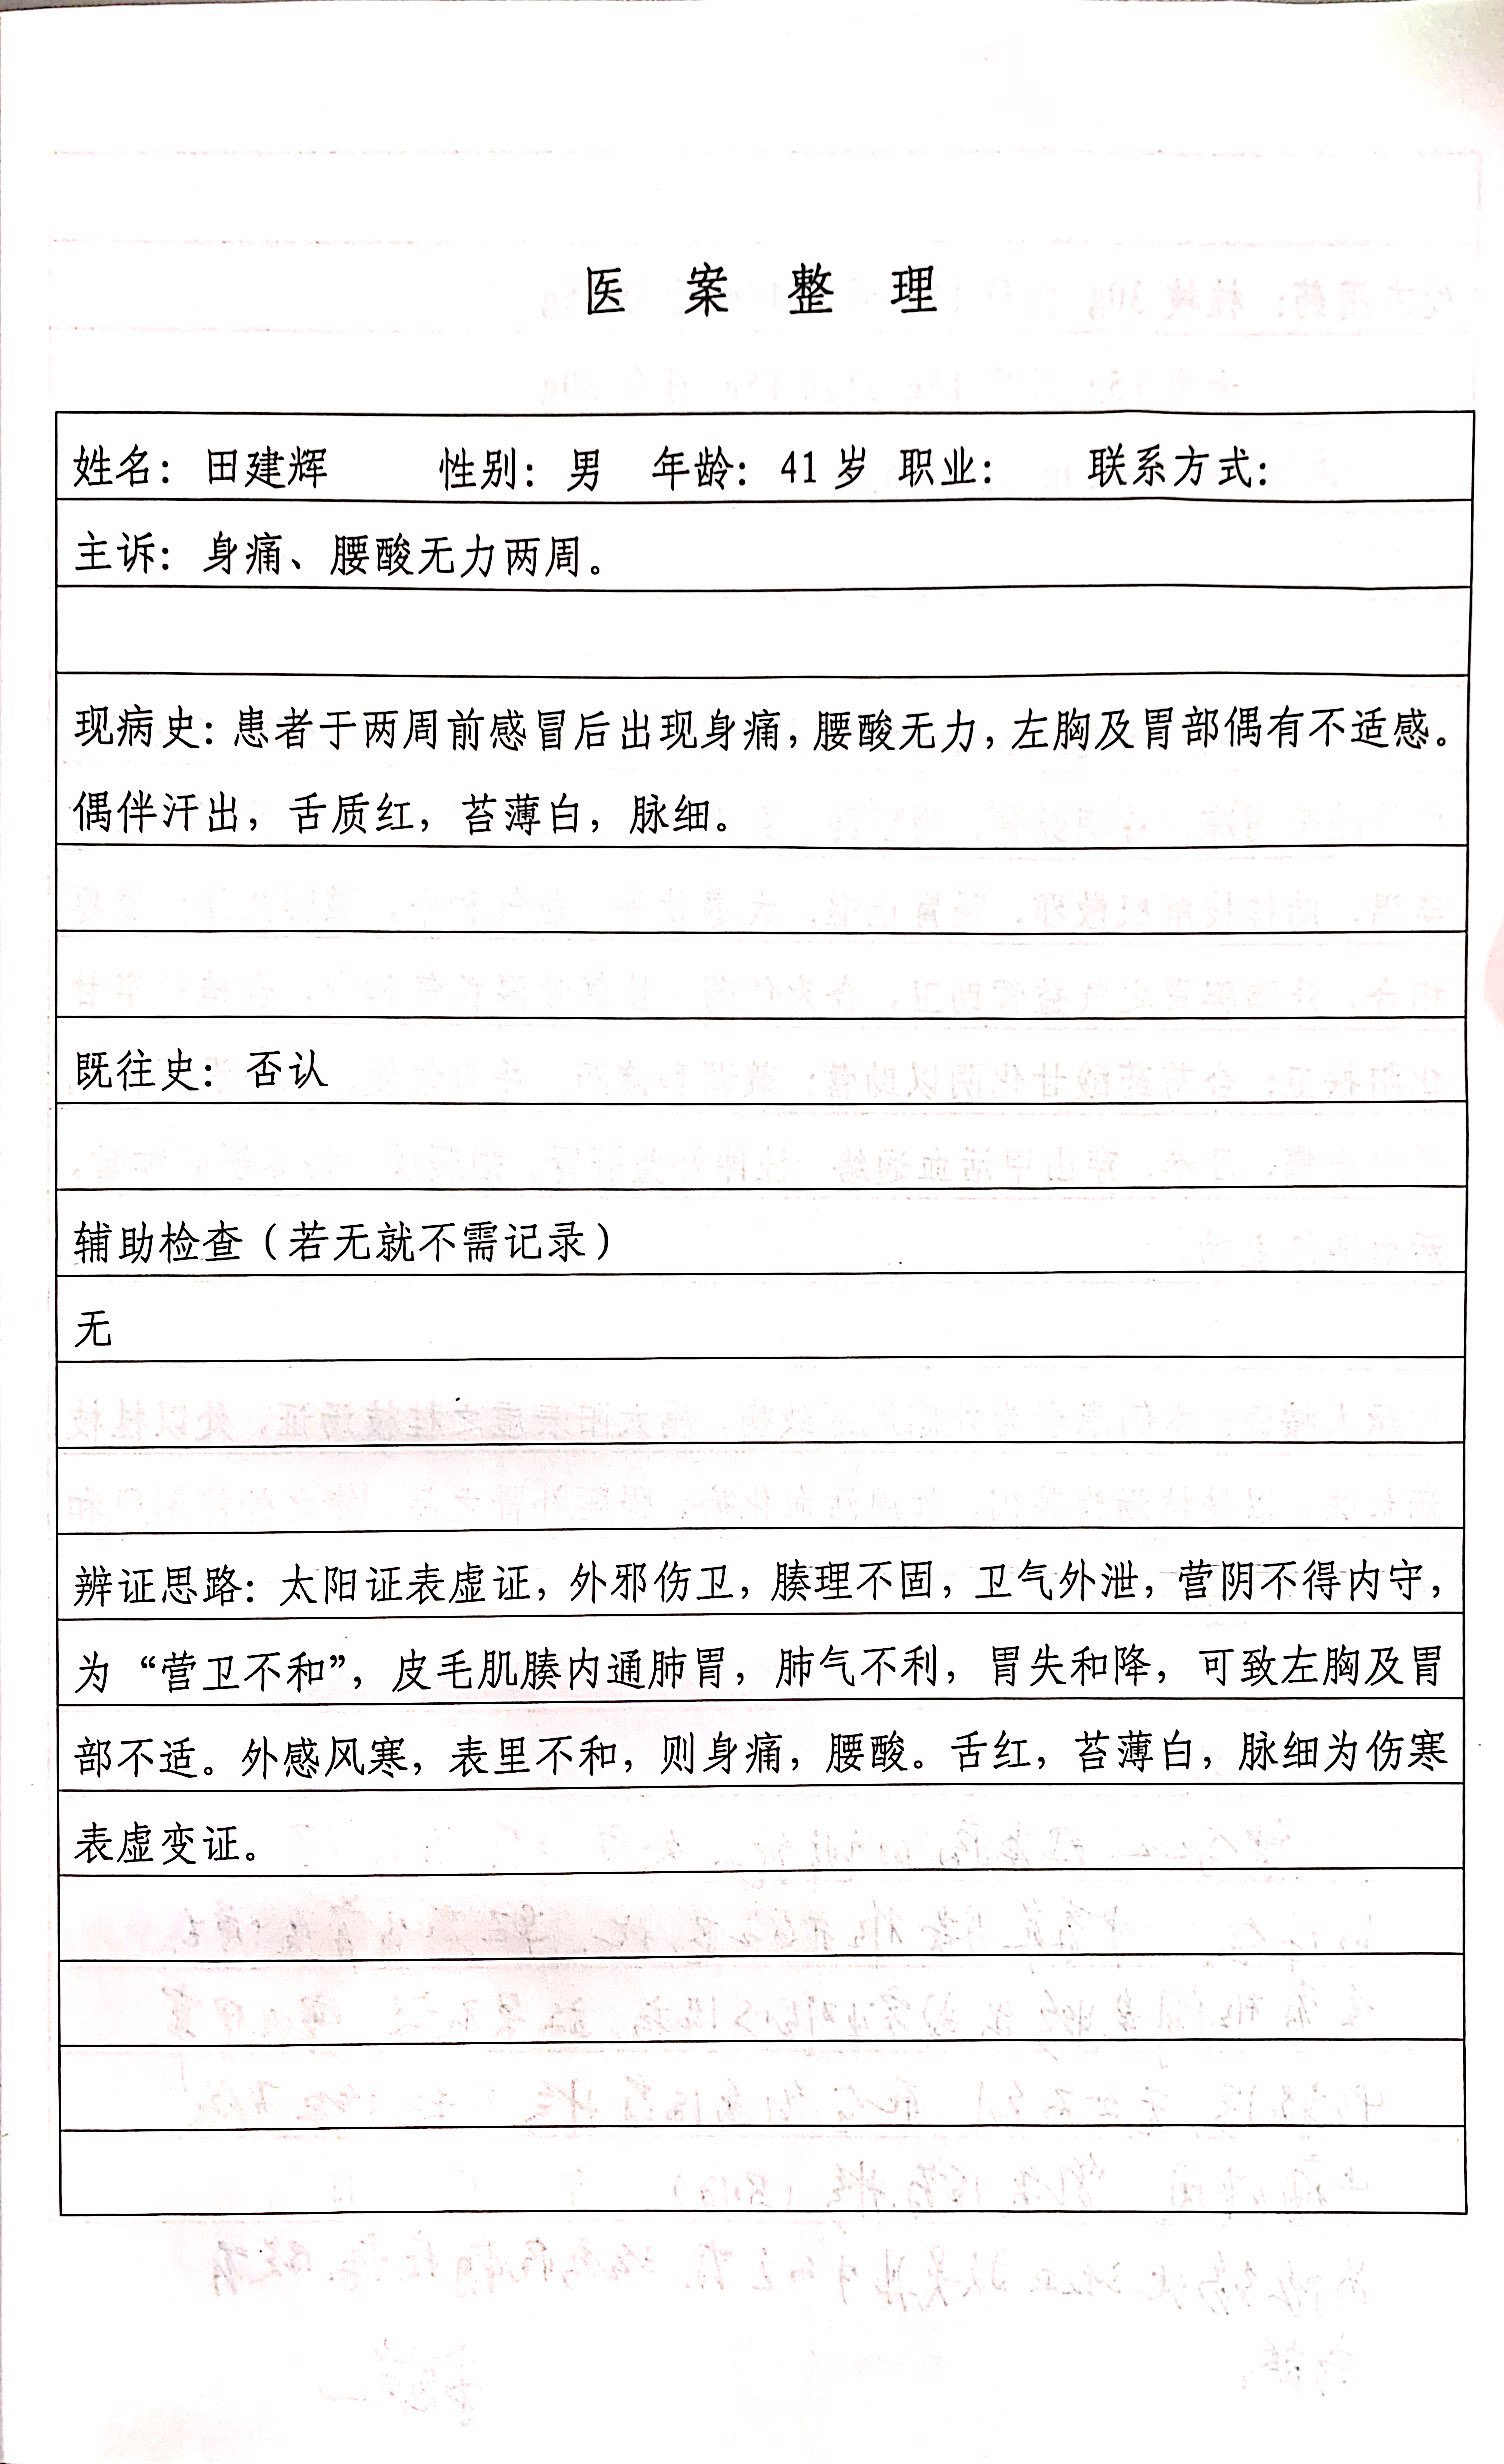 医案整理
姓名：田建辉 性别：男 年龄：41岁 职业： 联系方式：
主诉：身痛、腰酸无力两周。
现病史：患者于两周前感冒后出现身痛，腰酸无力，左胸及胃部偶有不适感。
偶伴汗出，舌质红，苔薄白，脉细。
既往史：否认
辅助检查（若无就不需记录）
无
辨证思路：太阳证表虚证，外邪伤卫，腠理不固，卫气外泄，营阴不得内守，
为“营卫不和”，皮毛肌腠内通肺胃，肺气不利，胃失和降，可致左胸及胃
部不适。外感风寒，表里不和，则身痛，腰酸。舌红，苔薄白，脉细为伤寒
表虚变证。